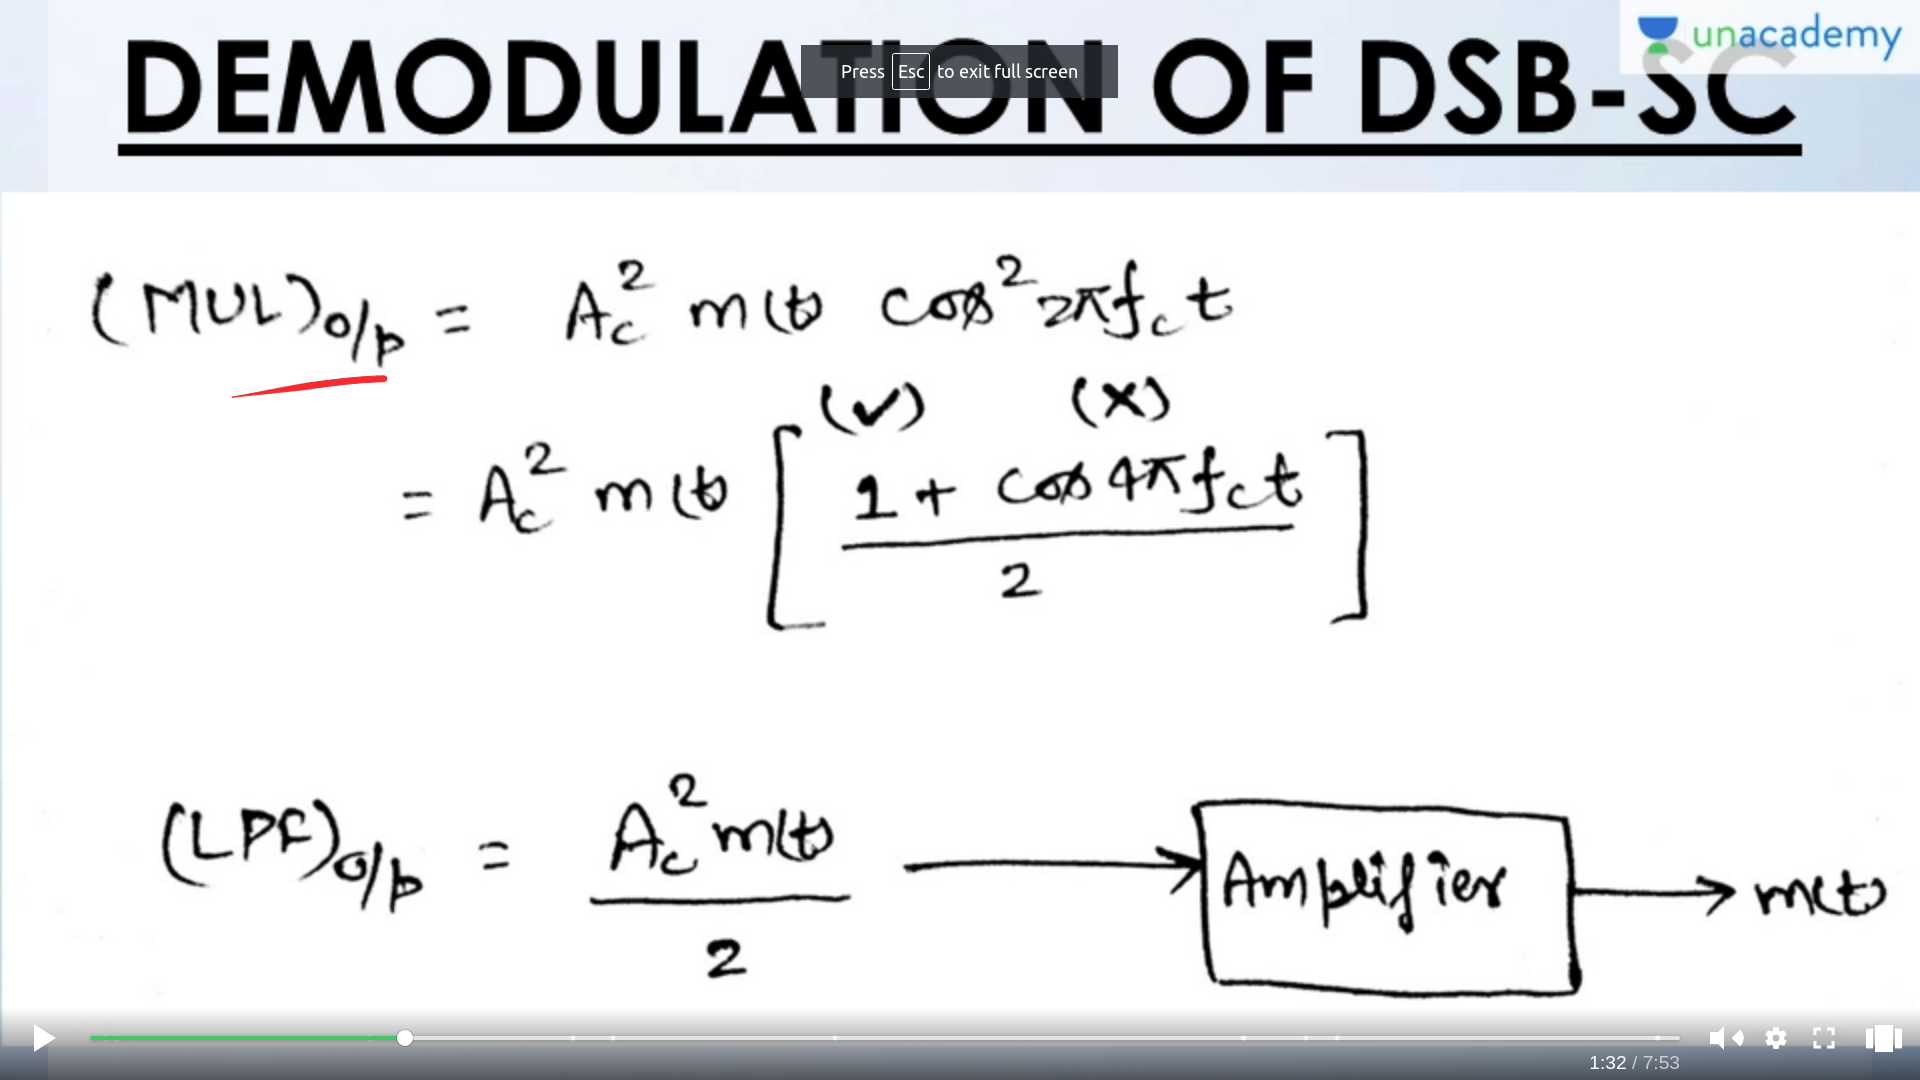 unacademy
DEMODULATION OF DSB-SC
Press Esc to exit full screen
(MUL)o/p = Ac² m(t) cos² 2πfct
(✓) (×)
= Ac² m(t) [ 1 + cos 4πfct / 2 ]
(LPF)o/p = Ac² m(t) / 2 → Amplifier → m(t)
1:32 / 7:53